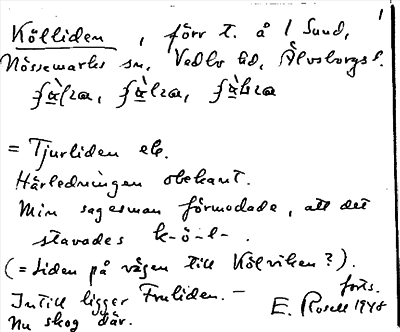 1
Kölliden, förr t. å 1 Sund,
Nössemarks sn. Vedbo hd, Älvsborgs l.
= Tjurliden el.
Härledningen obekant.
Min sagesman förmodade, att det
stavades k-ö-l-.
(= Liden på vägen till Kölviken?).
forts.
Intill ligger Fruliden. —
E. Rosell 1948
Nu skog där.